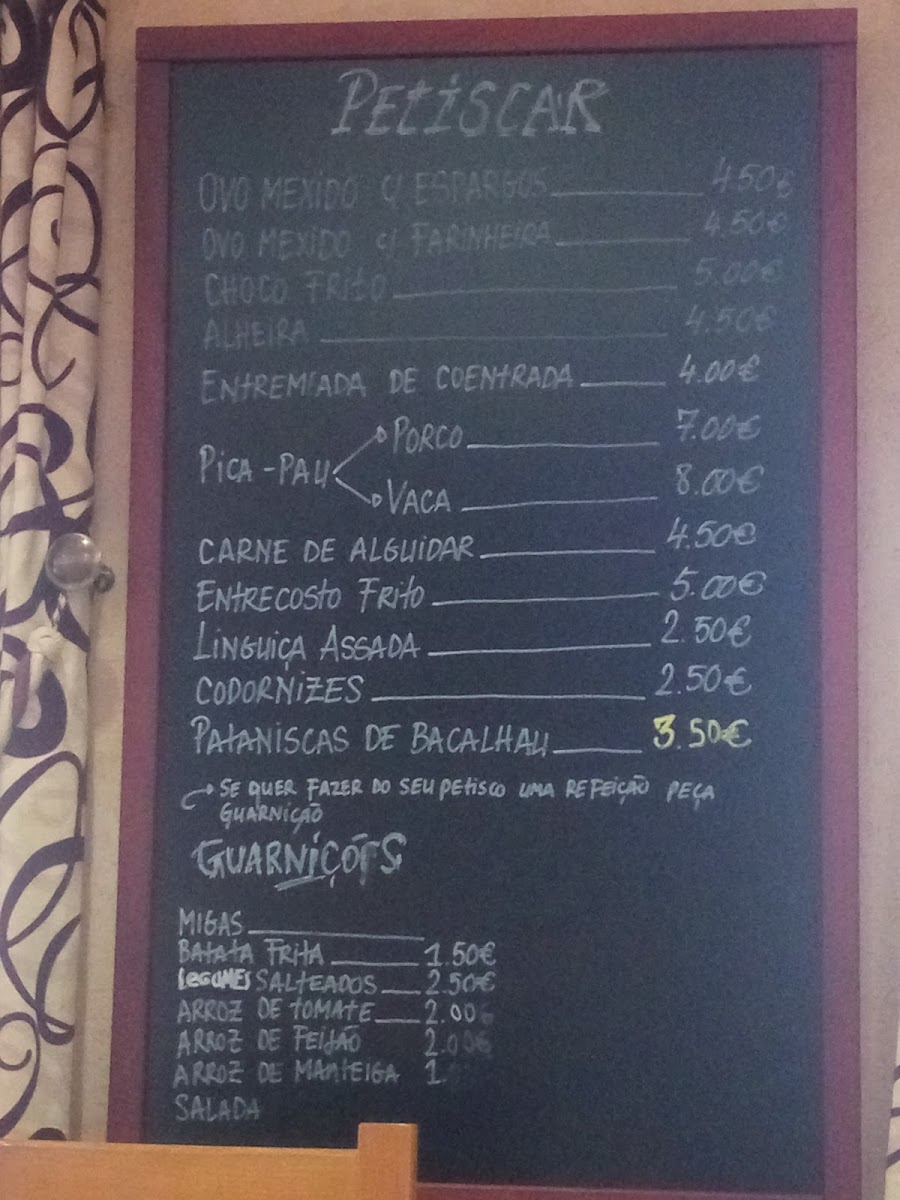 PETISCAR
OVO MEXIDO C/ ESPARGOS 4.50€
OVO MEXIDO C/ FARINHEIRA 4.50€
CHOCO FRITO 5.00€
ALHEIRA 4.50€
ENTREMIADA DE COENTRADA 4.00€
PICA-PAU PORCO 7.00€
VACA 8.00€
CARNE DE ALGUIDAR 4.50€
ENTRECOSTO FRITO 5.00€
LINGUIÇA ASSADA 2.50€
CODORNIZES 2.50€
PATANISCAS DE BACALHAU 3.50€
SE QUER FAZER DO SEU PETISCO UMA REFEIÇÃO PEÇA
GUARNIÇÃO
GUARNIÇÕES
MIGAS
BATATA FRITA 1.50€
LEGUMES SALTEADOS 2.50€
ARROZ DE TOMATE 2.00€
ARROZ DE FEIJÃO 2.00€
ARROZ DE MANTEIGA 1.
SALADA